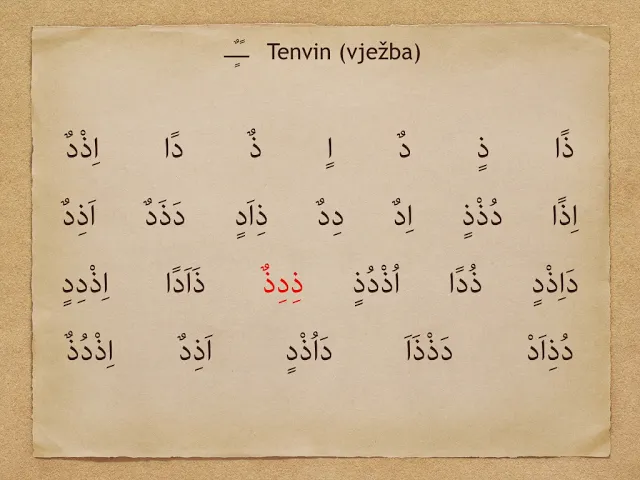 ـًـٍـٌ Tenvin (vježba)
ذًا ذٍ دٌ اٍ ذٌ دًا اِذْدٌ
اِذًا دُذْذٍ اِدٌ دِدٌ ذِاَدٍ دَذَدٌ اَذِدٌ
دَاِذْدٍ ذُدًا اُذْدُذٍ ذِدِذٌ ذَاَدًا اِذْدِدٍ
دُذِاَدْ دَذْذَاَ دَاُذْدٍ اَذِدٌ اِذْدُذٌ